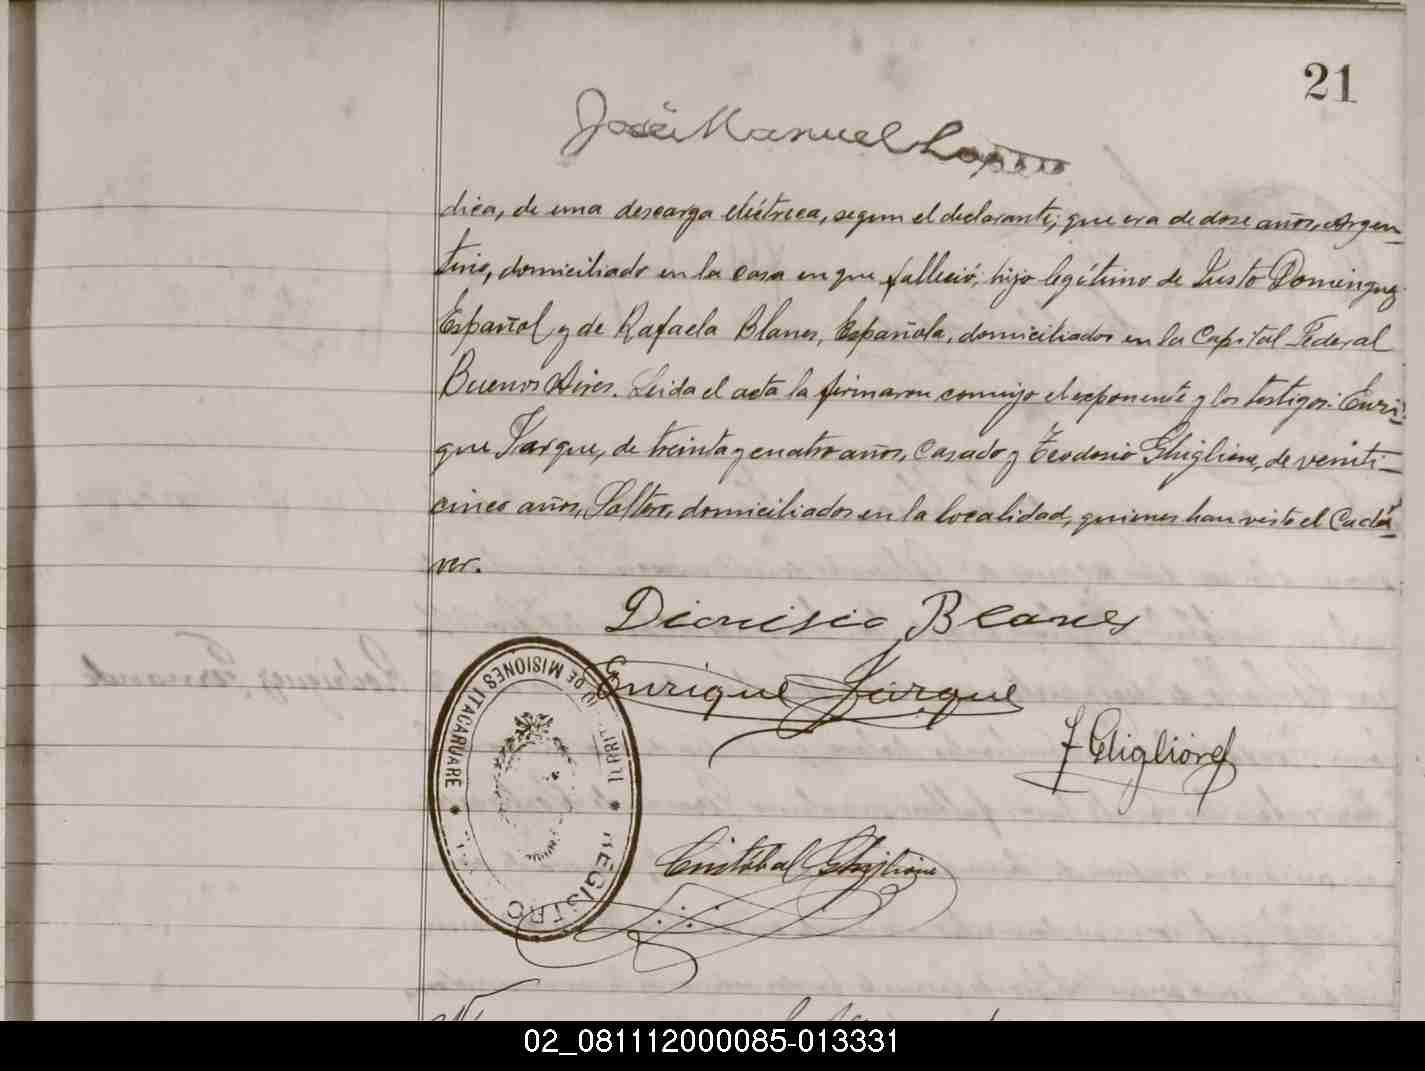 21
José Manuel
dica, de una descarga eléctrica, segun el declarante; que era de dose años, Argen-
tino, domiciliado en la casa en que falleció; hijo legítimo de Justo Dominguez
Español y de Rafaela Blanes, Española, domiciliados en la Capital Federal
Buenos Aires. Leida el acta la firmaron conmigo el exponente y los testigos: Enri-
que Jarque, de treinta y cuatro años, Casado y Teodosio Ghiglione, de veinti-
cinco años, Soltero, domiciliados en la localidad, quienes han visto el Cadá-
ver.
Dionisio Blanes
Enrique Jarque
T Ghiglione
Cristóbal Ghiglione
REGISTRO
DE MISIONES ITACARUARE
02_081112000085-013331